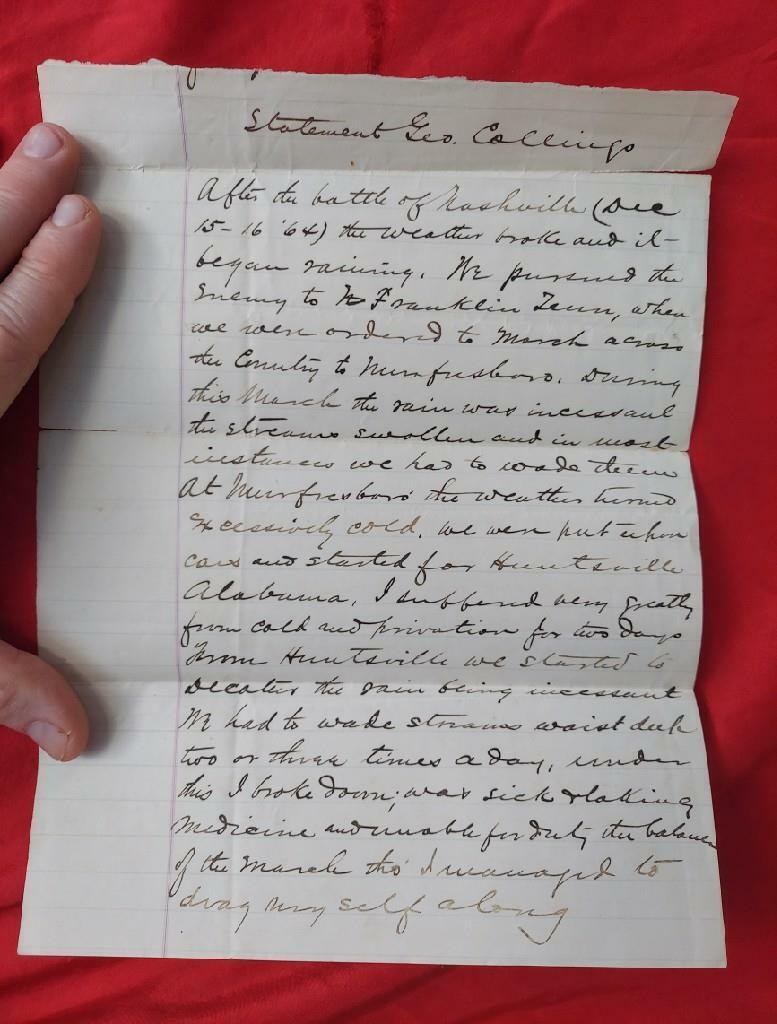 Statement Geo. Collings
After the battle of Nashville (Dec
15-16 '64) the weather broke and it
began raining. We pursued the
Enemy to Franklin Tenn, when
we were ordered to March across
the Country to Murfresboro. During
this March the rain was incessant
the streams swollen and in most
instances we had to wade them
At Murfresboro the weather turned
Excessively cold, we were put upon
cars and started for Huntsville
Alabama, I suffered very greatly
from cold and privation for two days
From Huntsville we started to
Decatur the rain being incessant
We had to wade streams waist deep
two or three times a day, under
this I broke down; was sick & taking
Medicine and unable for duty the balance
of the March tho' I managed to
drag my self along